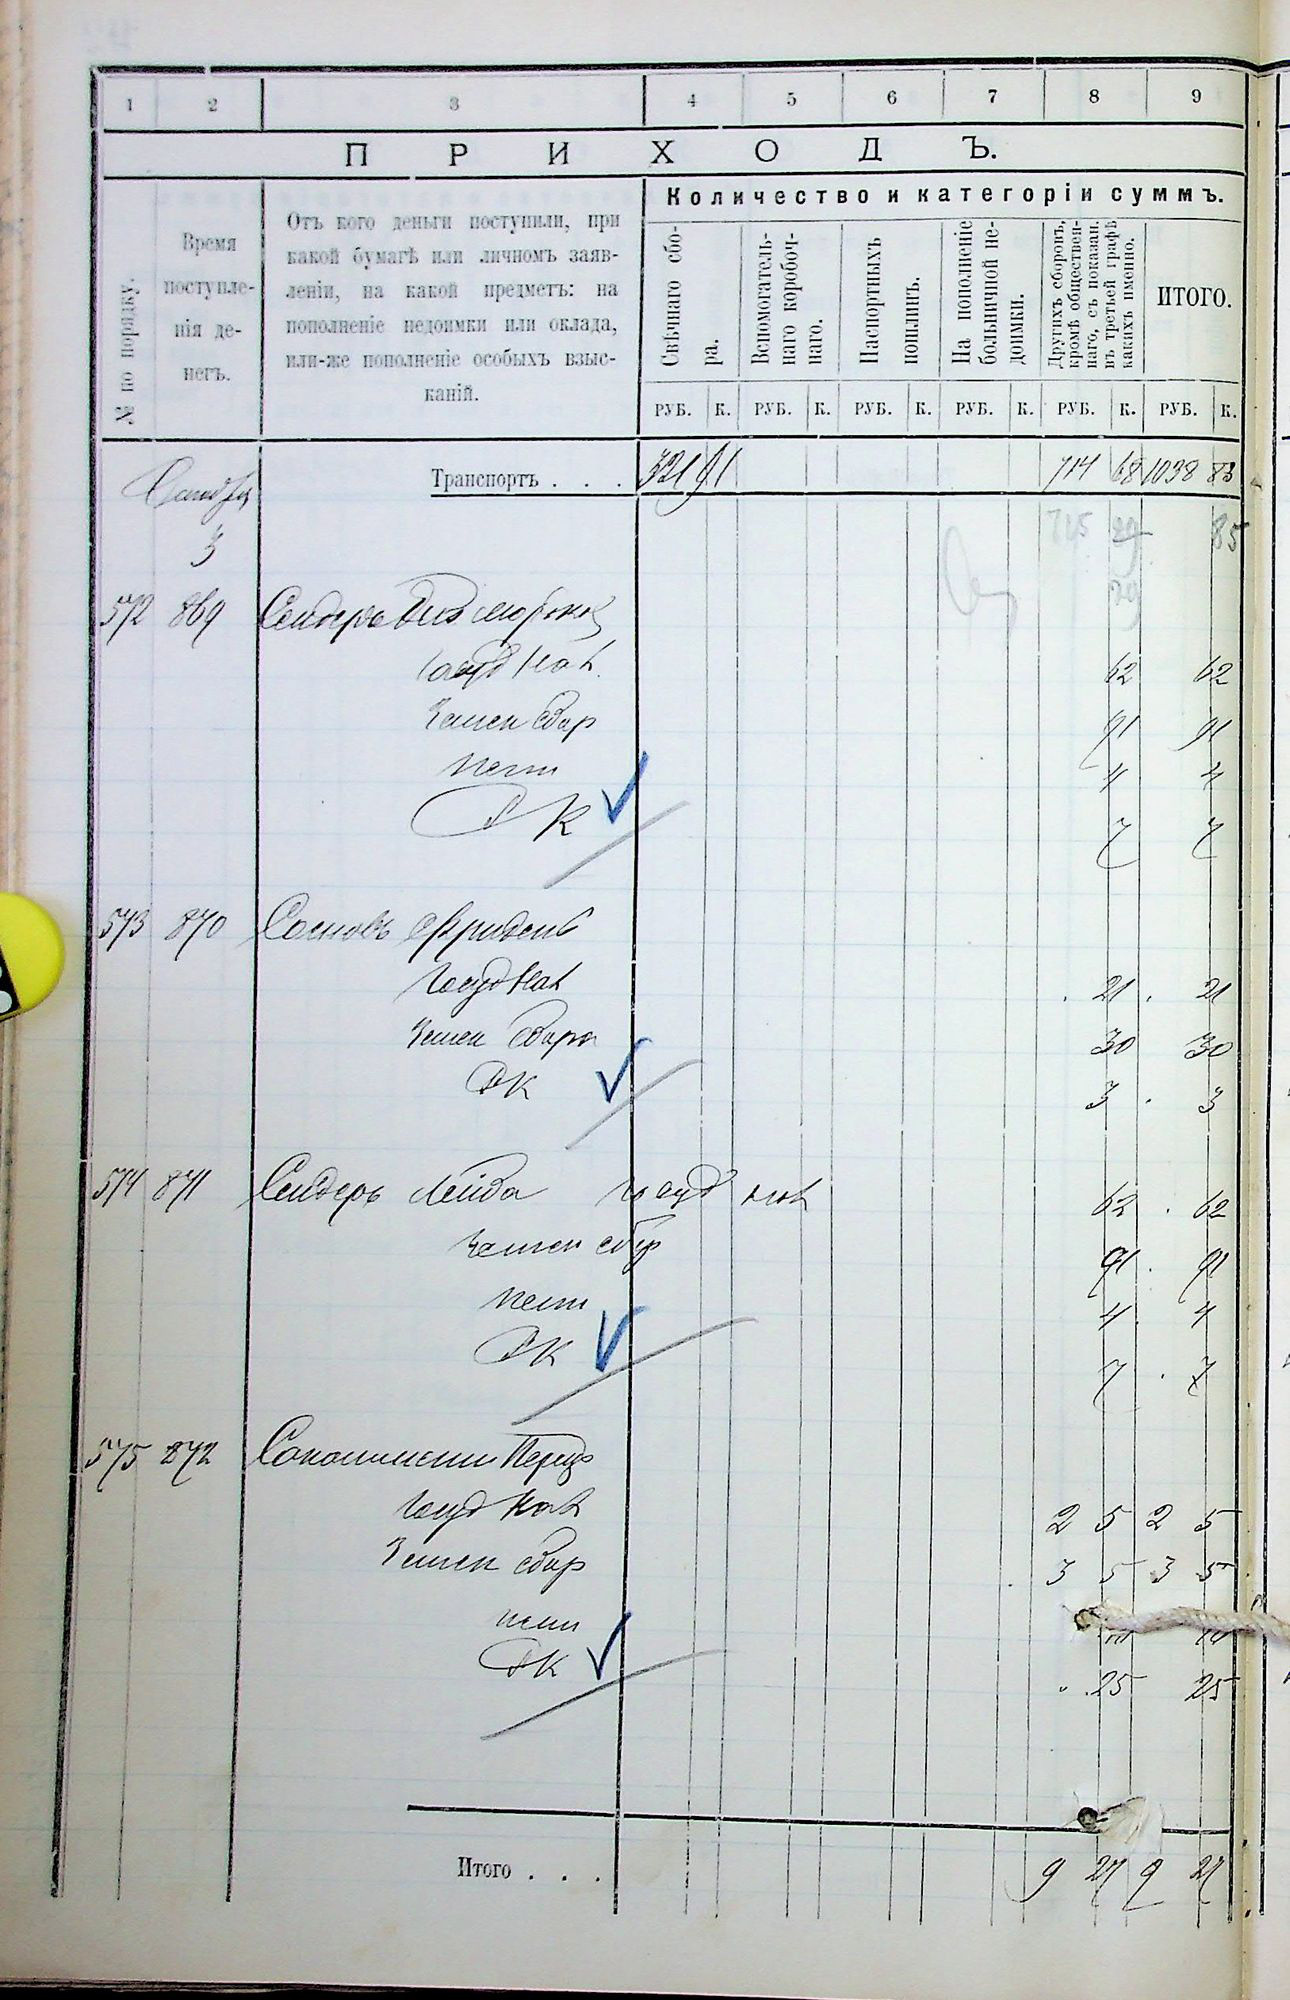 1 2 3 4 5 6 7 8 9
П Р И Х О Д Ъ.
№ по порядку.
Время
поступле-
нія де-
негъ.
Отъ кого деньги поступили, при
какой бумагѣ или личномъ заяв-
леніи, на какой предметъ: на
пополненіе недоимки или оклада,
или-же пополненіе особыхъ взыс-
каній.
Количество и категоріи суммъ.
Свѣчнаго сбо-
ра.
Вспомогатель-
наго коробоч-
наго.
Паспортныхъ
пошлинъ.
На пополненіе
больничной не-
доимки.
Другихъ сборовъ,
кромѣ обществен-
наго, съ показан.
въ третьей графѣ
какихъ именно.
ИТОГО.
РУБ. К. РУБ. К. РУБ. К. РУБ. К. РУБ. К. РУБ. К.
Транспортъ . . . 321 91 714 68 1038 83
85
3
572 869 Сендеръ
62 62
Земск сбор 91 91
пени 4 4
К 7 7
573 870
Госуд Нал 21 21
Земск сбора 30 30
К 3 3
574 871 Сендеръ Лейба Госуд нал 62 62
Земск сбор 91 91
пени 4 4
К 7 7
575 872 Перецъ
Госуд Нал 2 5 2 5
Земск сбор 3 5 3 5
пени
К 25 25
Итого . . . 9 27 9 27